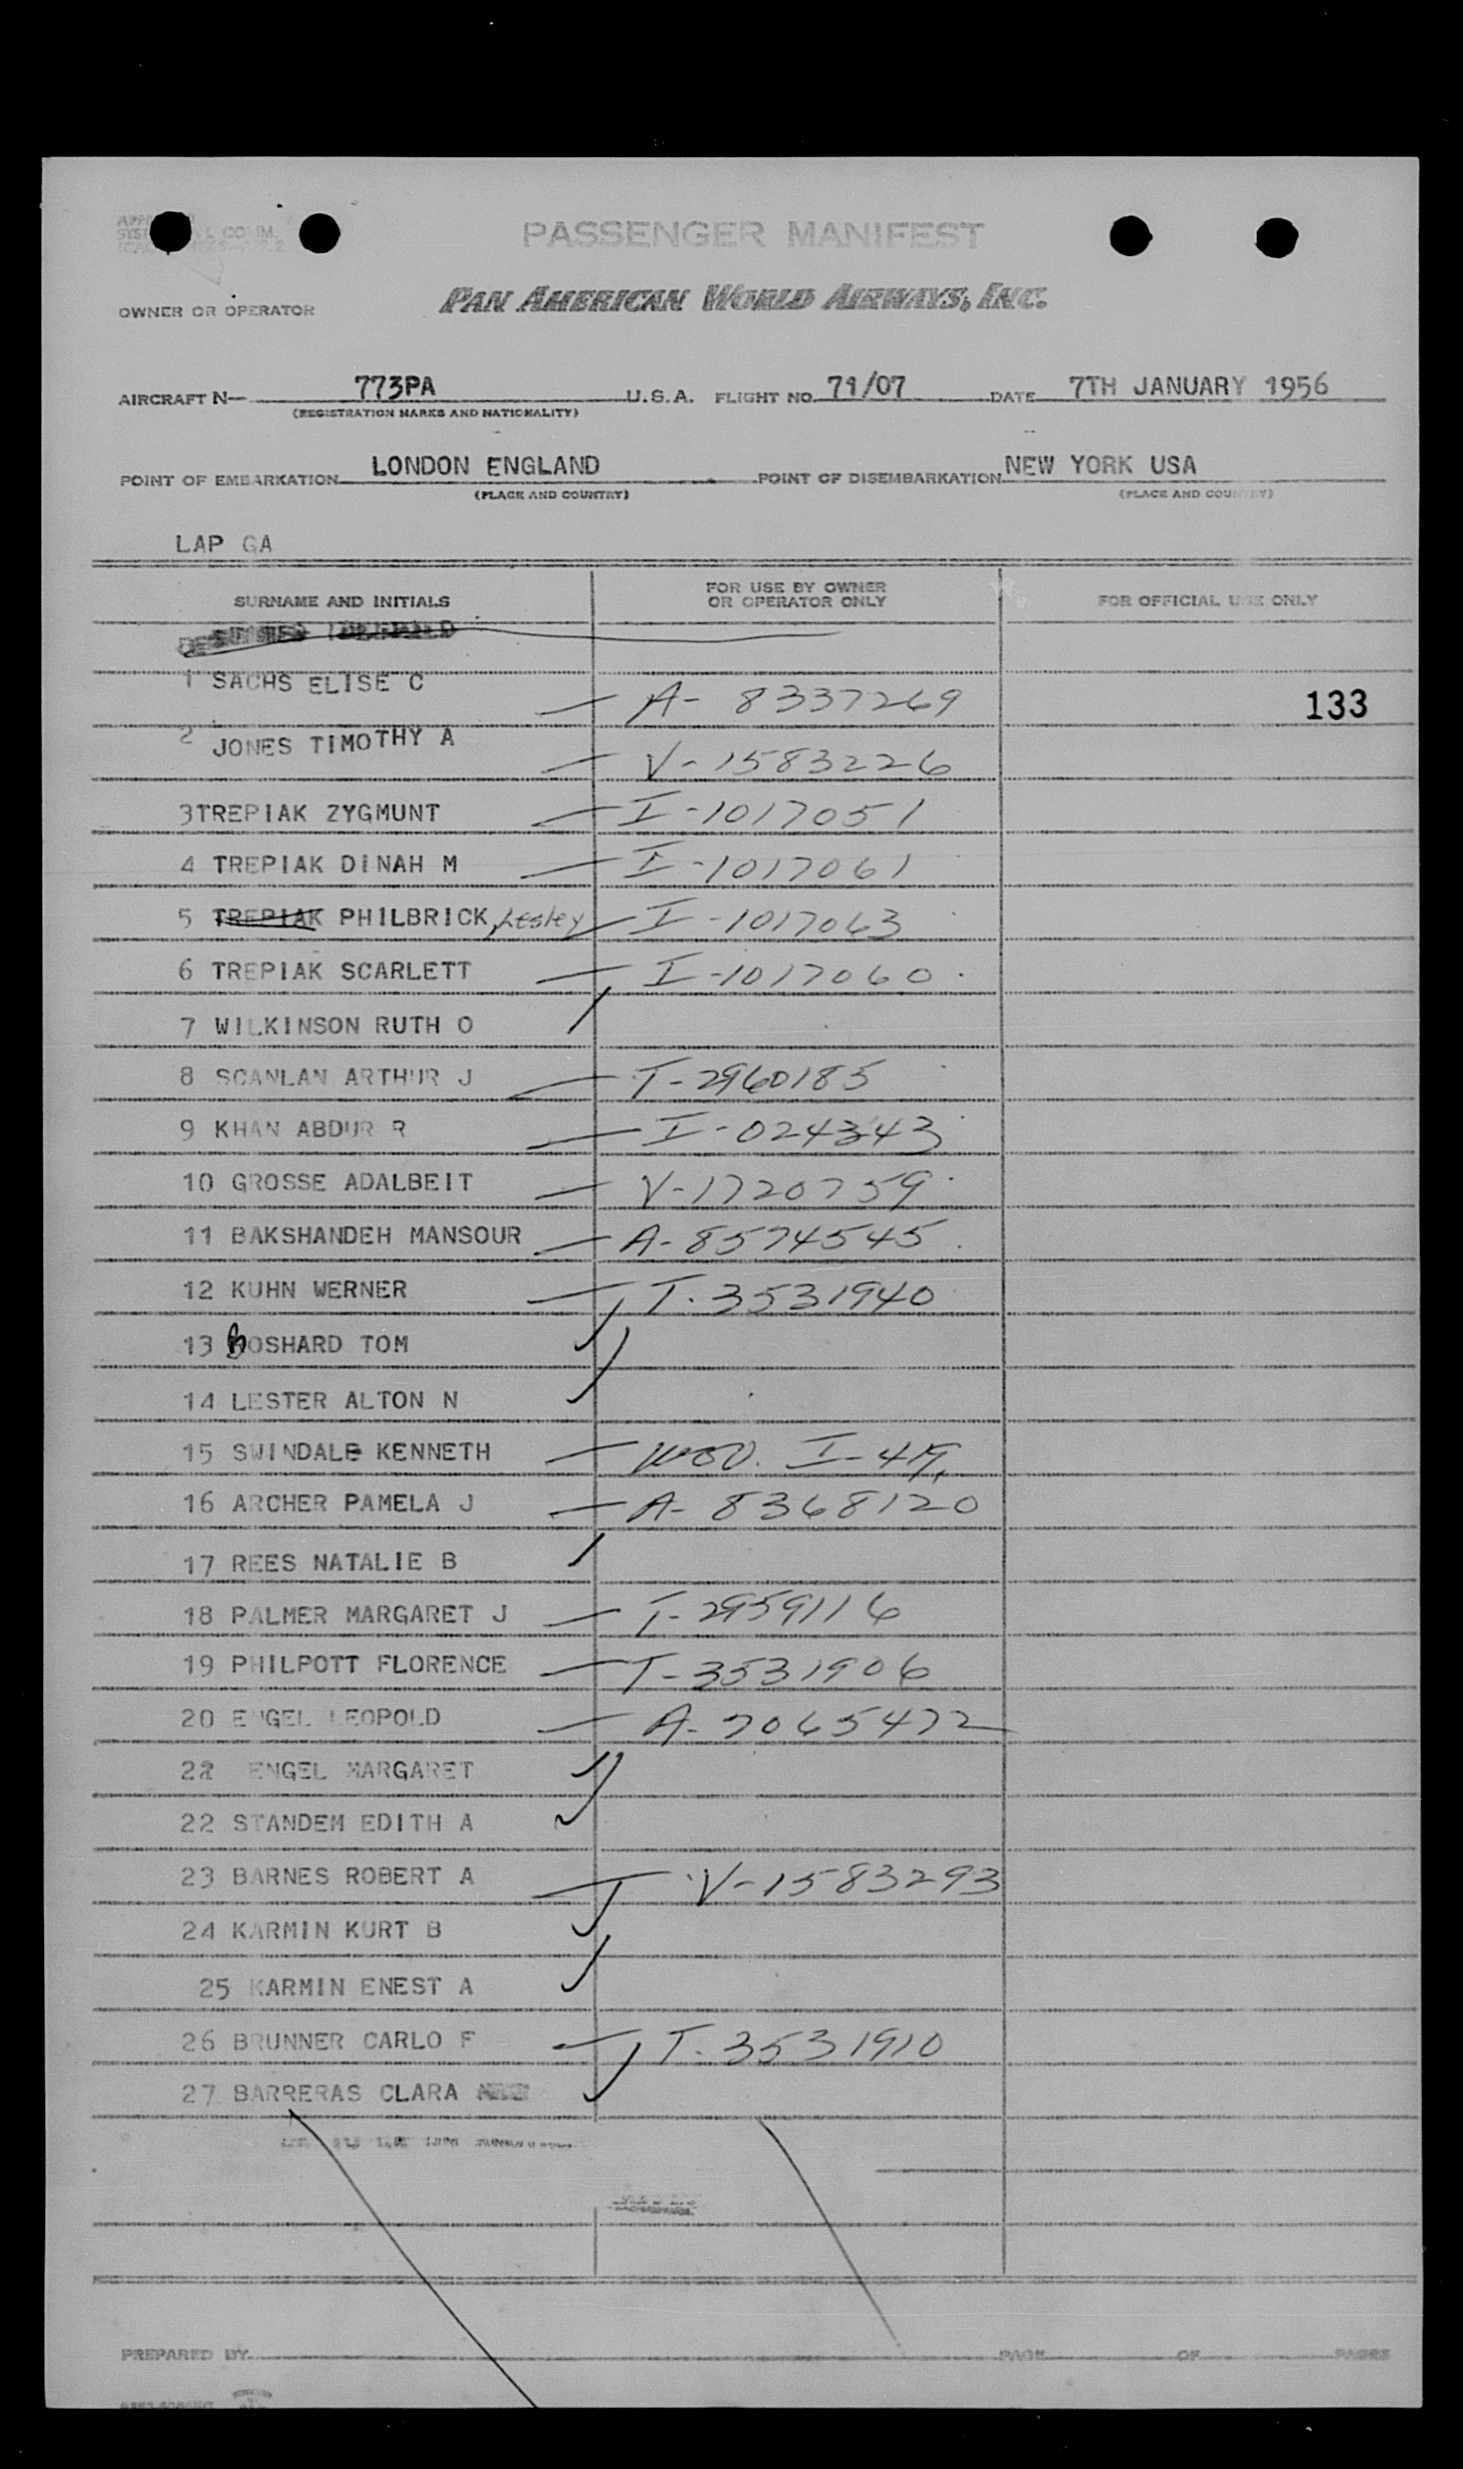 PASSENGER MANIFEST
OWNER OR OPERATOR PAN AMERICAN WORLD AIRWAYS, INC.
AIRCRAFT N- 773PA U.S.A. FLIGHT NO. 71/07 DATE 7TH JANUARY 1956
(REGISTRATION MARKS AND NATIONALITY)
POINT OF EMBARKATION LONDON ENGLAND POINT OF DISEMBARKATION NEW YORK USA
(PLACE AND COUNTRY) (PLACE AND COUNTRY)
LAP GA
SURNAME AND INITIALS FOR USE BY OWNER OR OPERATOR ONLY FOR OFFICIAL USE ONLY
1 SACHS ELISE C A- 8337269 133
2 JONES TIMOTHY A V-1583226
3TREPIAK ZYGMUNT I-1017051
4 TREPIAK DINAH M I-1017061
5 TREPIAK PHILBRICK, Lesley I-1017063
6 TREPIAK SCARLETT I-1017060
7 WILKINSON RUTH O
8 SCANLAN ARTHUR J T-2960185
9 KHAN ABDUR R I-024343
10 GROSSE ADALBEIT V-1720759
11 BAKSHANDEH MANSOUR A-8574545
12 KUHN WERNER T-3531940
13 BOSHARD TOM
14 LESTER ALTON N
15 SWINDALE KENNETH I-
16 ARCHER PAMELA J A-8368120
17 REES NATALIE B
18 PALMER MARGARET J T-2959116
19 PHILPOTT FLORENCE T-3531906
20 ENGEL LEOPOLD A-7065472
22 ENGEL MARGARET
22 STANDEM EDITH A
23 BARNES ROBERT A V-1583293
24 KARMIN KURT B
25 KARMIN ENEST A
26 BRUNNER CARLO F T-3531910
27 BARRERAS CLARA
PREPARED BY PAGE OF PAGES